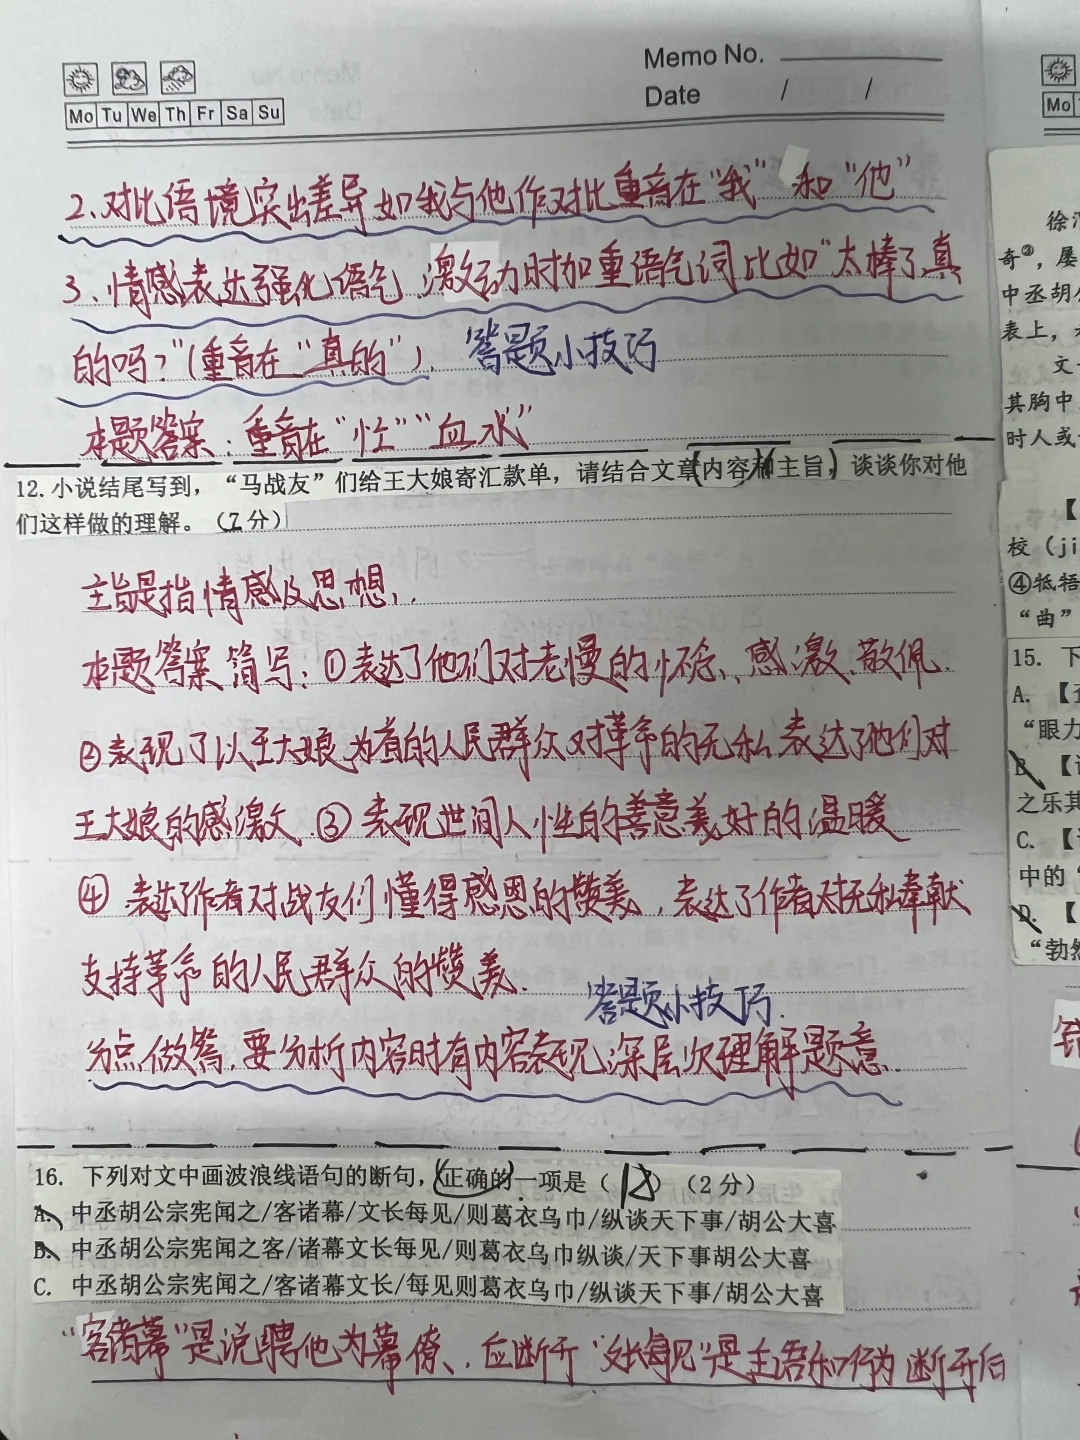 Memo No.
Mo Tu We Th Fr Sa Su
Date / /
2、对比语境突出差异如我与他作对比重音在“我”和“他”
3、情感表达强化语气,激动时加重语气词比如“太棒了,真
的吗?”(重音在“真的”). 答题小技巧
本题答案:重音在“忙”“血水”
12. 小说结尾写到,“马战友”们给王大娘寄汇款单,请结合文章(内容)和(主旨),谈谈你对他
们这样做的理解。(7分)
主旨是指情感及思想.
本题答案简写:①表达了他们对老馒的怀念、感激、敬佩.
②表现了以王大娘为首的人民群众对革命的无私,表达了他们对
王大娘的感激 ③表现世间人性的善意美好的温暖
④表达了作者对战友们懂得感恩的赞美,表达了作者对无私奉献
支持革命的人民群众的赞美.
答题小技巧.
分点做答,要分析内容时有内容表现,深层次理解题意.
16. 下列对文中画波浪线语句的断句,正确的一项是( )(2分)
A. 中丞胡公宗宪闻之/客诸幕/文长每见/则葛衣乌巾/纵谈天下事/胡公大喜
B. 中丞胡公宗宪闻之客/诸幕文长每见/则葛衣乌巾纵谈/天下事胡公大喜
C. 中丞胡公宗宪闻之/客诸幕文长/每见则葛衣乌巾/纵谈天下事/胡公大喜
“客诸幕”是说聘他为幕僚、应断开“文长每见”是主语和行为断开后
Mo
徐
奇③,屡
中丞胡
表上,
文
其胸中
时人或
【
校(ji
④抵牾
“曲”
15. 下
A. 【
“眼力
B. 【
之乐其
C. 【
中的“
D. 【
“勃然